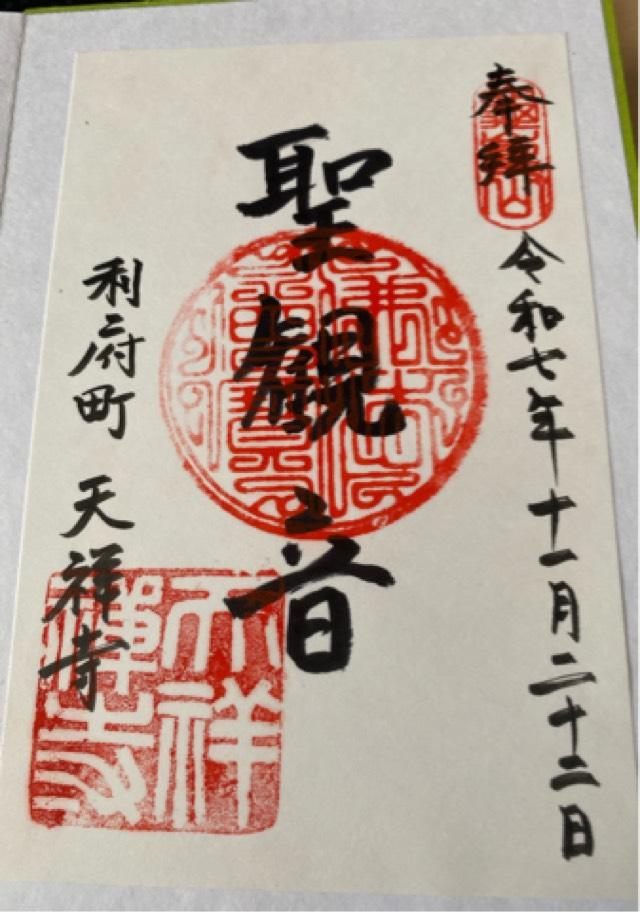 奉拝
令和七年十一月二十二日
聖観音
利府町 天祥寺
天祥
禅寺